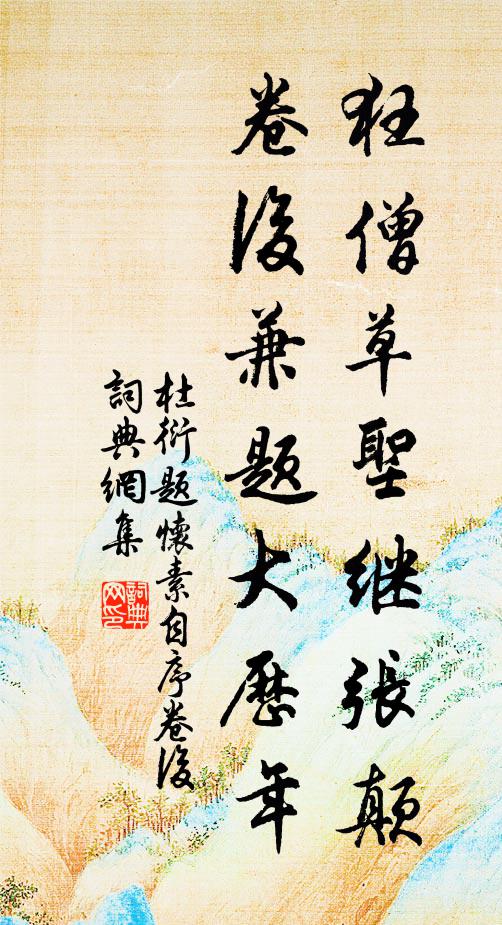 狂僧草聖継張顛
卷後兼題大曆年
杜衍題懷素自序卷後
詞典網集
詞典
网印